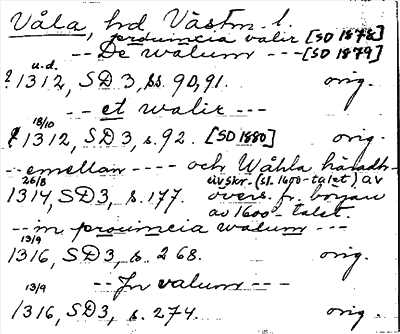 Våla, hd Västm. l.
prouincia valir [SD 1878]
-- De walum --- [SD 1879]
u.d.
? 1312, SD 3, ss. 90, 91. orig.
-- et walir ---
18/10
? 1312, SD 3, s. 92. [SD 1880] orig.
-- emellan ---- och Wåhla häradh -
26/8 avskr. (sl. 1600-talet) av
1314, SD 3, s. 177. övers. fr. början
av 1600-talet.
-- in prouincia walum ---
13/9
1316, SD3, s. 268. orig.
-- Jn valum ---
13/9
1316, SD3, s. 274. orig.